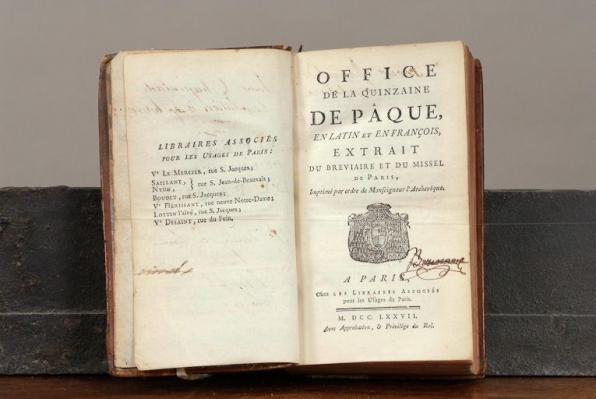 LIBRAIRES ASSOCIÉS
POUR LES USAGES DE PARIS:
Vᵉ LE MERCIER, rue S. Jacques;
SAILLANT,
NYON, } rue S. Jean-de-Beauvais;
BOUDET, rue S. Jacques;
Vᵉ HÉRISSANT, rue neuve Notre-Dame;
LOTTIN l'aîné, rue S. Jacques;
Vᵉ DESAINT, rue du Foin.
OFFICE
DE LA QUINZAINE
DE PÂQUE,
EN LATIN ET EN FRANÇOIS,
EXTRAIT
DU BREVIAIRE ET DU MISSEL
DE PARIS,
Imprimé par ordre de Monseigneur l'Archevêque.
A PARIS,
Chez LES LIBRAIRES ASSOCIÉS
pour les Usages de Paris.
M. DCC. LXXVII.
Avec Approbation, & Privilége du Roi.